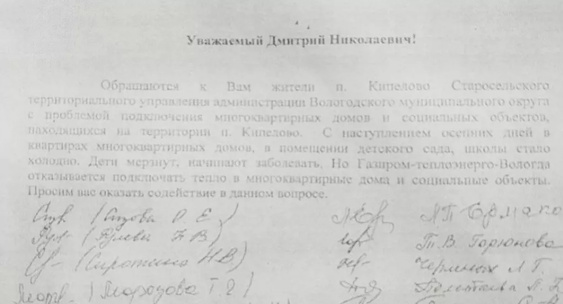 Уважаемый Дмитрий Николаевич!
Обращаются к Вам жители п. Кипелово Старосельского
территориального управления администрации Вологодского муниципального округа
с проблемой подключения многоквартирных домов и социальных объектов,
находящихся на территории п. Кипелово. С наступлением осенних дней в
квартирах многоквартирных домов, в помещении детского сада, школы стало
холодно. Дети мерзнут, начинают заболевать. Но Газпром-теплоэнерго-Вологда
отказывается подключать тепло в многоквартирные дома и социальные объекты.
Просим вас оказать содействие в данном вопросе.
О Е
Н В
Т.В. Горюнова
(Сироткина Н В) Л Г.